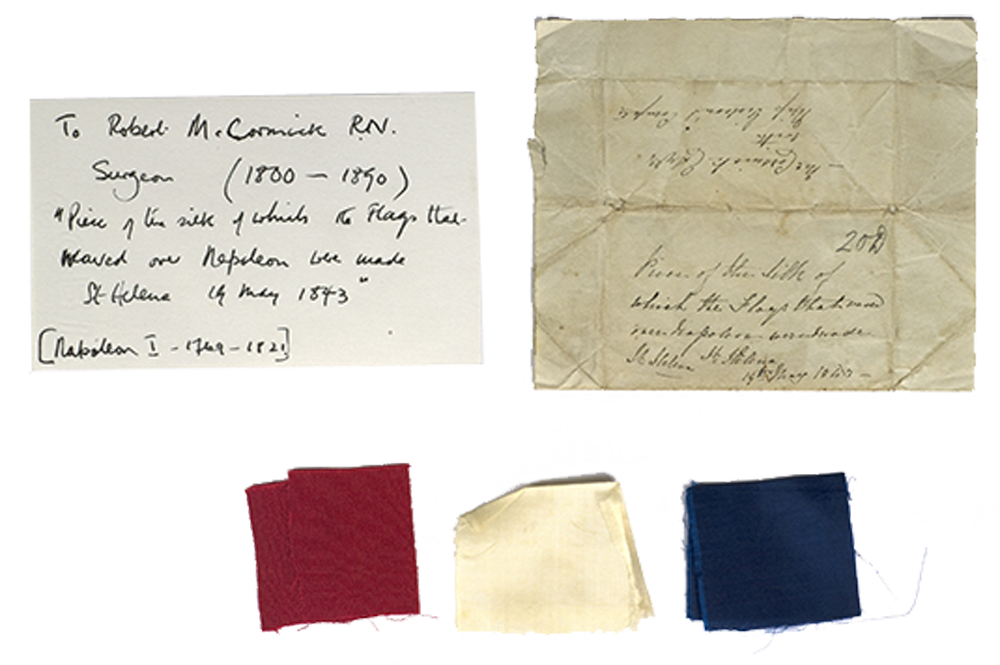 To Robert McCormick R.N.
Surgeon (1800 – 1890)
"Piece of the silk of which the Flags that
waved over Napoleon were made
St Helena 19 May 1843"
[Napoleon I – 1769 – 1821]
Mr McCormick
with
Miss Compts
20D
Piece of the Silk of
which the Flags that waved
over Napoleon were made
St Helena St Helena
19th May 1843 –